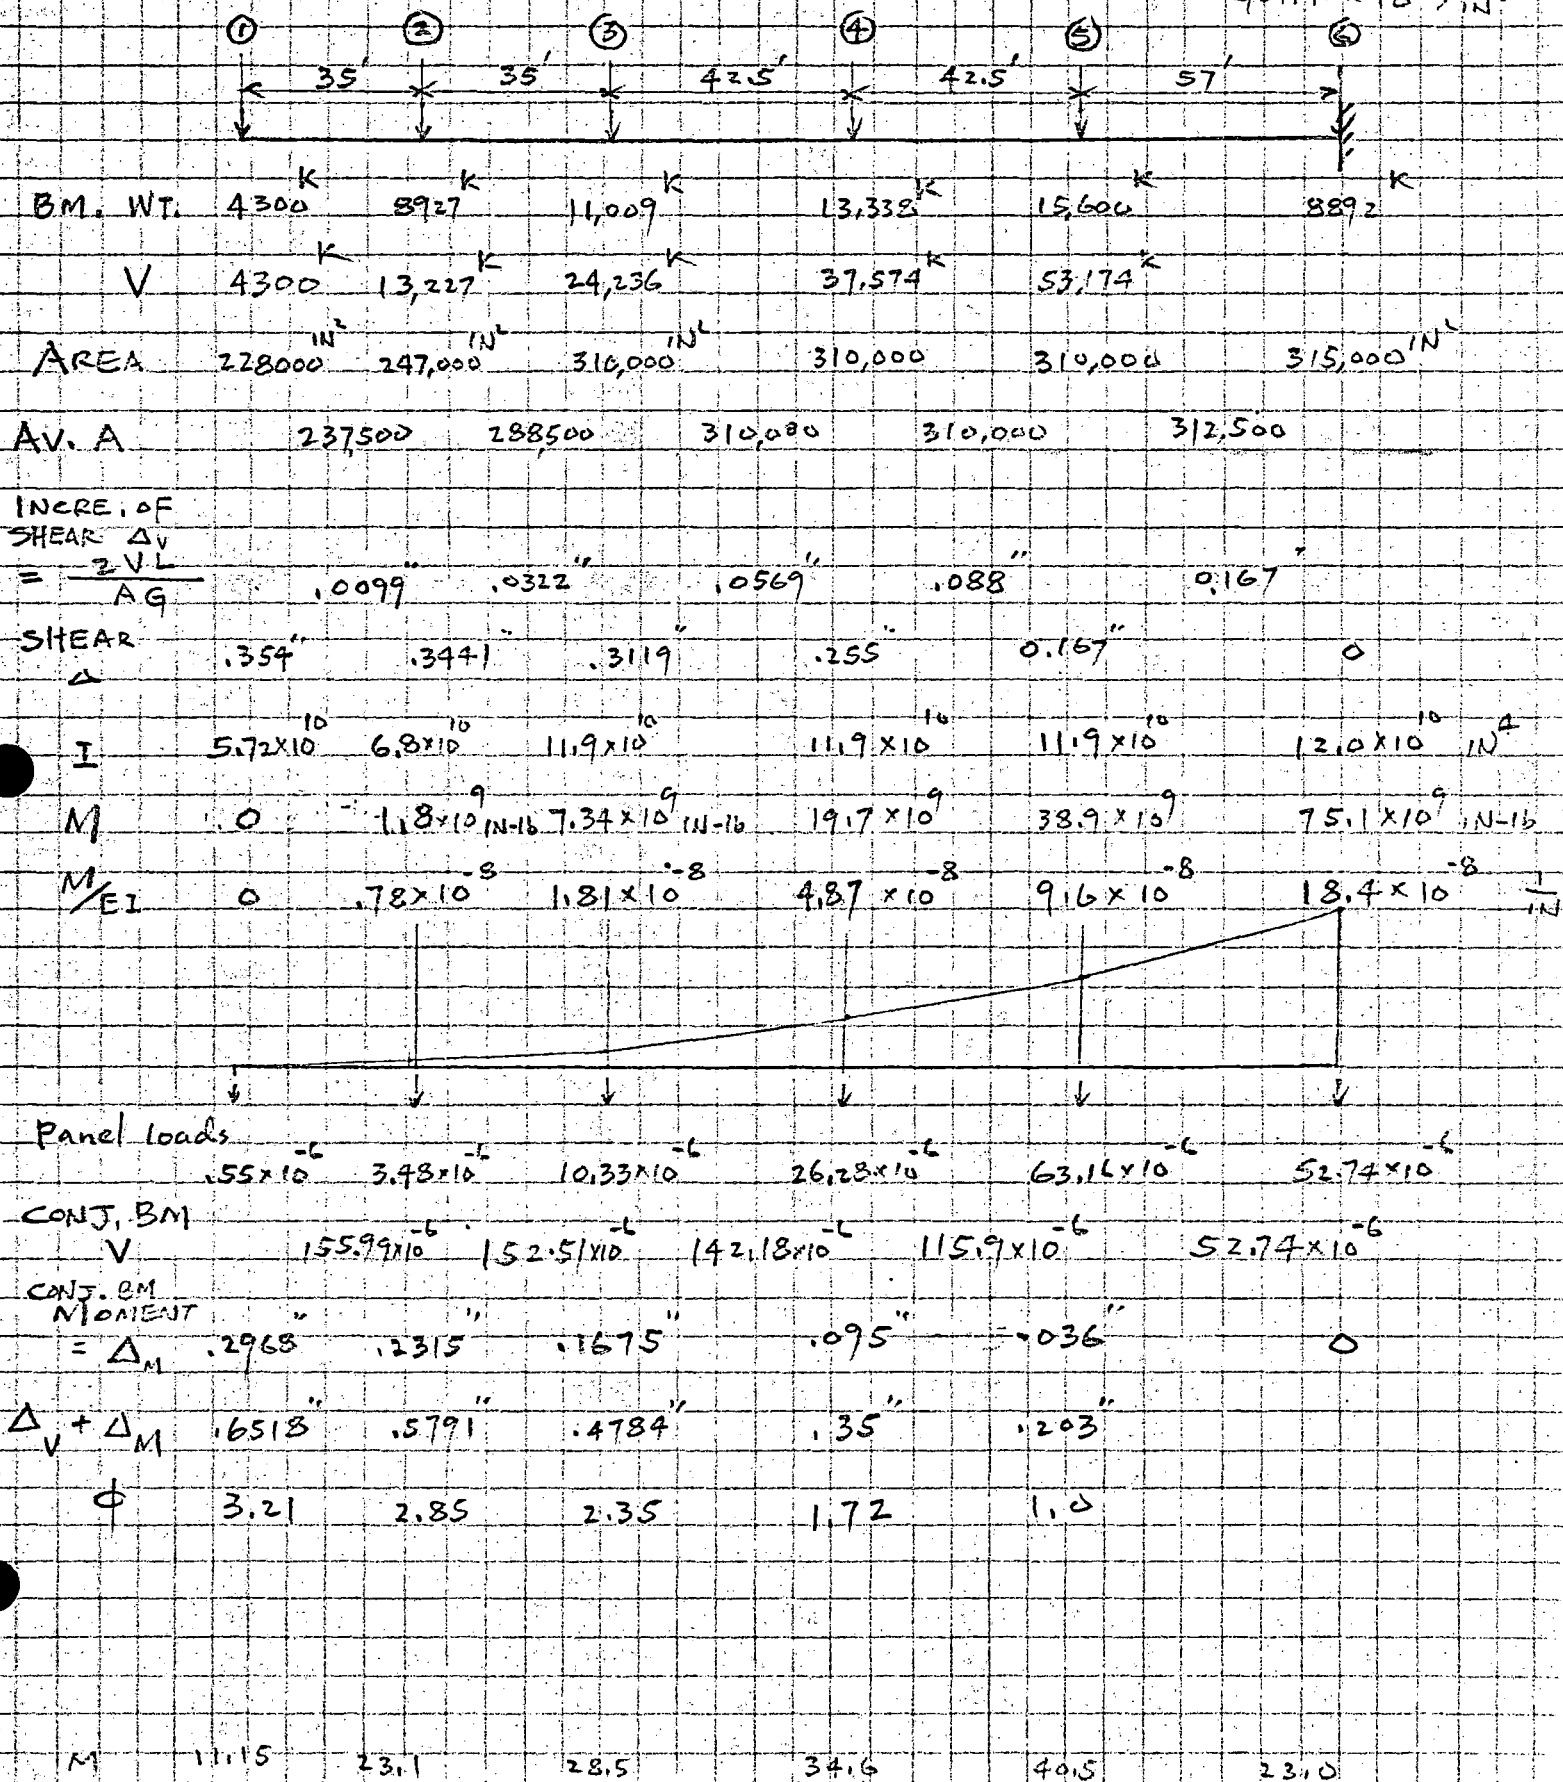 ① ② ③ ④ ⑤ ⑥
35' 35' 42.5' 42.5' 57'
BM. WT. 4300 K 8927 K 11,009 K 13,338 K 15,600 K 8892 K
V 4300 K 13,227 K 24,236 K 37,574 K 53,174 K
AREA 228000 IN² 247,000 IN² 310,000 IN² 310,000 310,000 315,000 IN²
AV. A 237,500 288,500 310,000 310,000 312,500
INCRE. OF
SHEAR Δv
= 2VL / AG .0099" .0322" .0569" .088" 0.167"
SHEAR
Δ .354" .3441" .3119" .255" 0.167" 0
I 5.72×10¹⁰ 6.8×10¹⁰ 11.9×10¹⁰ 11.9×10¹⁰ 11.9×10¹⁰ 12.0×10¹⁰ IN⁴
M 0 1.8×10⁹ IN-lb 7.34×10⁹ IN-lb 19.7×10⁹ 38.9×10⁹ 75.1×10⁹ IN-lb
M/EI 0 .78×10⁻⁸ 1.81×10⁻⁸ 4.87×10⁻⁸ 9.6×10⁻⁸ 18.4×10⁻⁸ 1/IN
Panel loads
.55×10⁻⁶ 3.48×10⁻⁶ 10.33×10⁻⁶ 26.28×10⁻⁶ 63.16×10⁻⁶ 52.74×10⁻⁶
CONJ. BM
V 155.99×10⁻⁶ 152.51×10⁻⁶ 142.18×10⁻⁶ 115.9×10⁻⁶ 52.74×10⁻⁶
CONJ. BM
MOMENT
= ΔM .2968" .2315" .1675" .095" .036" 0
Δv + ΔM .6518" .5791" .4784" .35" .203"
ϕ 3.21 2.85 2.35 1.72 1.0
M 11.15 23.1 28.5 34.6 40.5 23.0